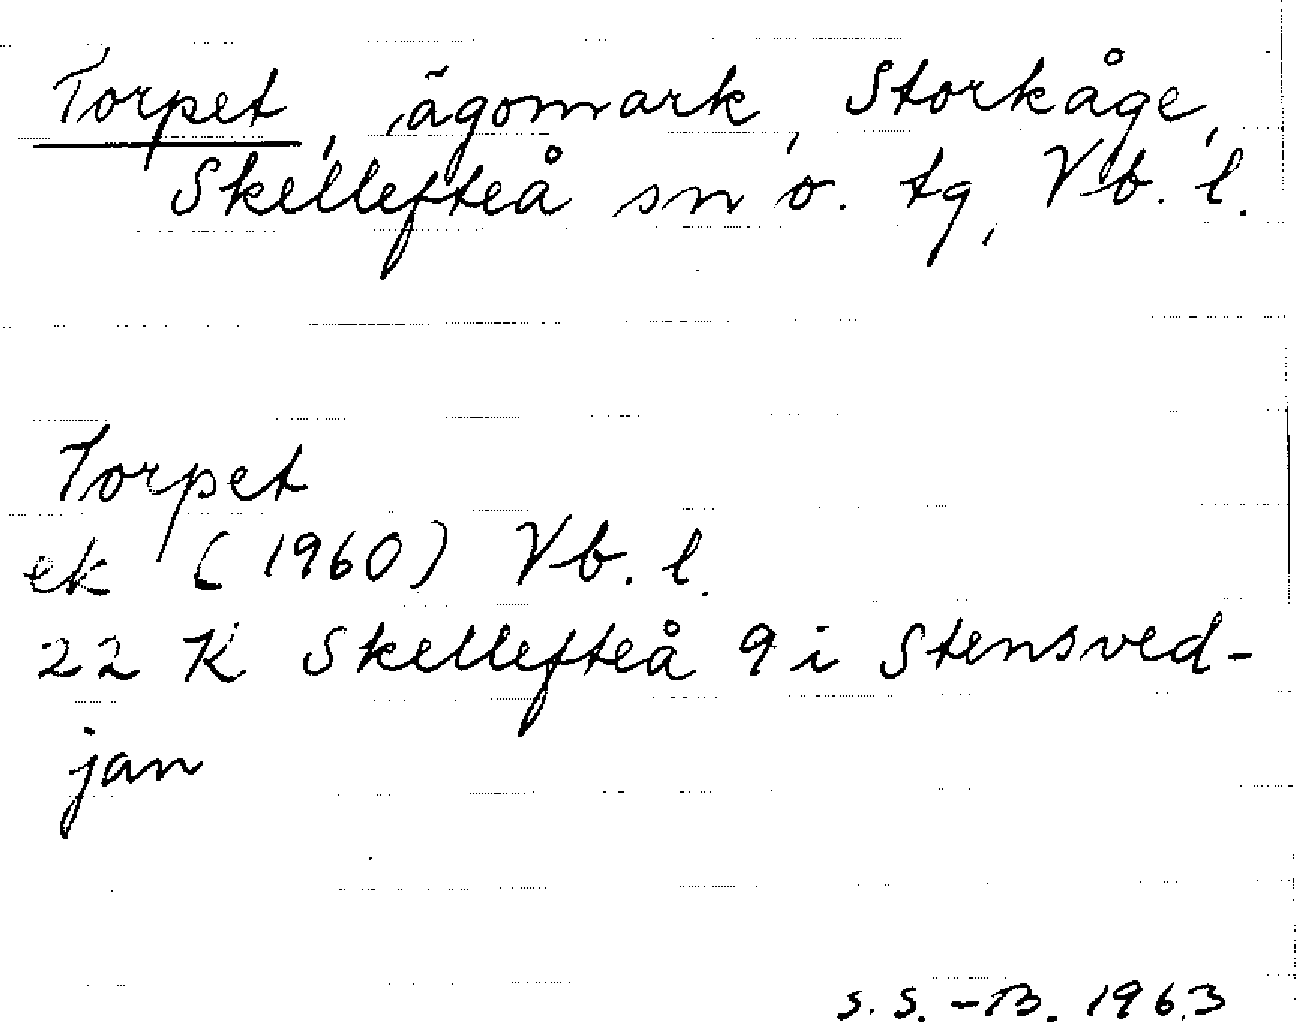 Torpet, ägomark, Storkåge,
Skellefteå sn o. tg, Vb. l.
Torpet
ek (1960) Vb. l.
22 K Skellefteå 9 i Stensved-
jan
S. S. - B. 1963